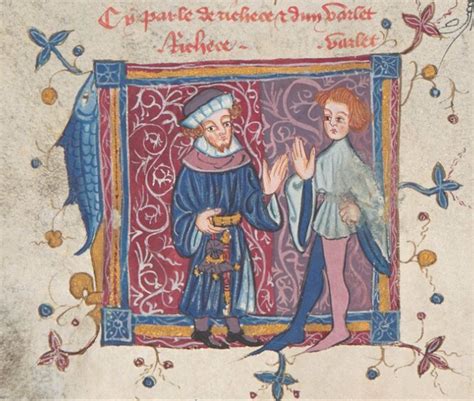 Cy parle de richece ⁊ dun varlet
Richece varlet